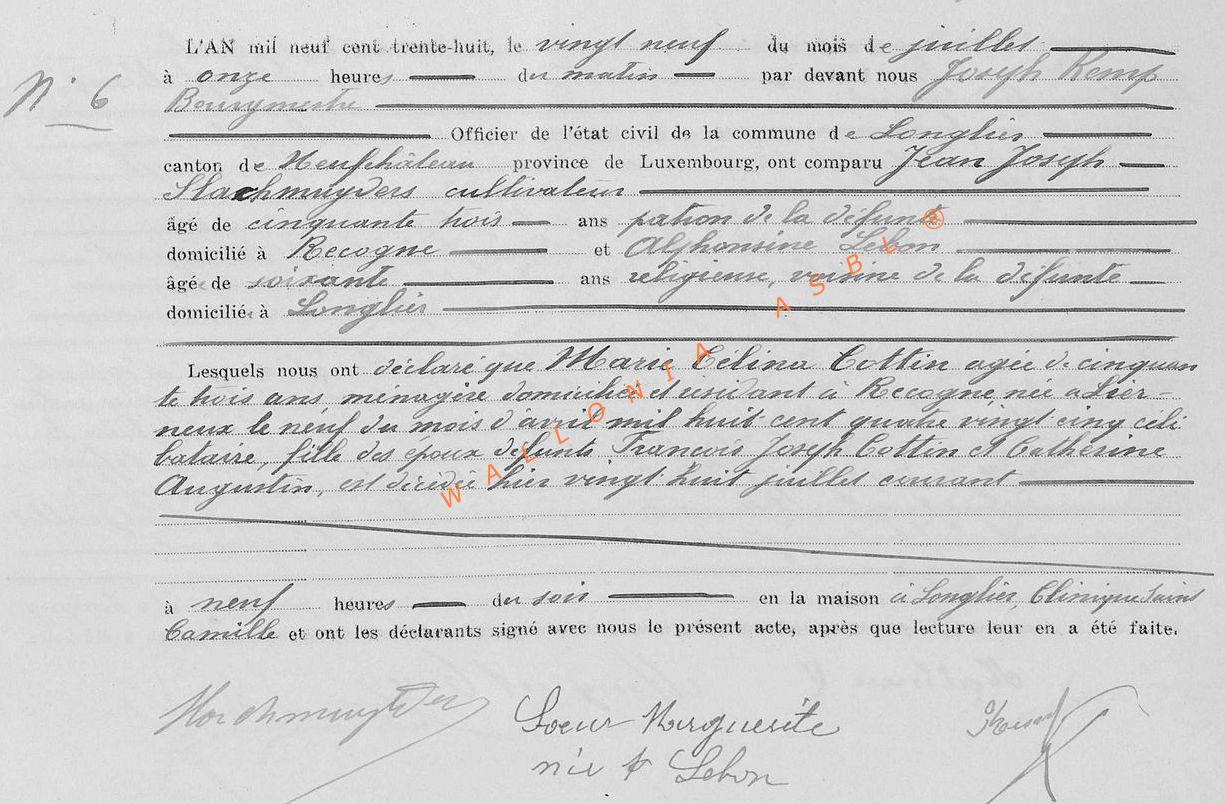 L'AN mil neuf cent trente-huit, le vingt neuf du mois de juillet
à onze heures du matin par devant nous Joseph Kemp
N° 6
Bourgmestre
Officier de l'état civil de la commune de Longlier
canton de Neufchâteau province de Luxembourg, ont comparu Jean Joseph
Slachmuylders cultivateur
âgé de cinquante trois ans patron de la défunte
domicilié à Recogne et Alphonsine Lebon
âgée de soixante ans religieuse, voisine de la défunte
domiciliée à Longlier
WALLONIA ASBL ®
Lesquels nous ont déclaré que Marie Célina Cottin agée de cinquan
te trois ans, ménagère domiciliée et résidant à Recogne née à Lier-
neux le neuf du mois d'avril mil huit cent quatre vingt cinq céli
bataire, fille des époux défunts François Joseph Cottin et Catherine
Augustin, est décédée hier vingt huit juillet courant
à neuf heures du soir en la maison à Longlier, Clinique Saint
Camille et ont les déclarants signé avec nous le présent acte, après que lecture leur en a été faite.
Soeur Marguerite
née A Lebon